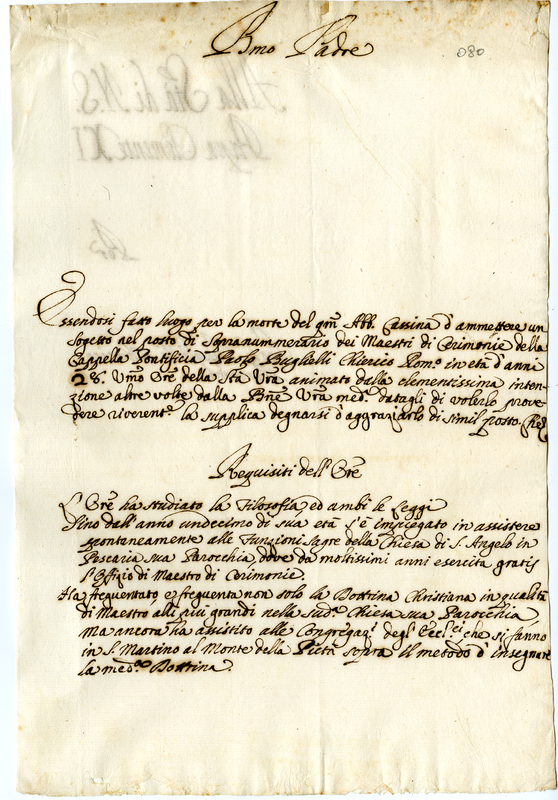 Bmo Padre
080
Essendosi fatto luogo per la morte del qm Abb. Cassina d'ammettere un
sogetto nel posto di Sopranummerario dei Maestri di Cerimonie della
Cappella Pontificia Paolo Buglielli Chierico Romo in età d'anni
28. Umo Ore della Stà Vra animato dalla clementissima inten-
zione altre volte dalla Bne Vra meda datagli di volerlo prove-
dere riverente la supplica degnarsi d'aggraziarlo di simil posto. Che
Requisiti dell'Ore
L'Ore ha studiato la Filosofia, ed ambi le Leggi
Sino dall'anno undecimo di sua età s'è impiegato in assistere
spontaneamente alle Funzioni Sagre della Chiesa di S. Angelo in
Pescaria sua Parocchia, dove da moltissimi anni esercita gratis
l'Offizio di Maestro di Cerimonie.
Ha frequentato, e frequenta non solo la Dottina Christiana in qualità
di Maestro alli più grandi nella suda Chiesa sua Parocchia,
ma ancora ha assistito alle Congregaz degl' Eccl.ci che si fanno
in S. Martino al Monte della Pietà sopra il metodo d'insegnare
la meda Dottina.